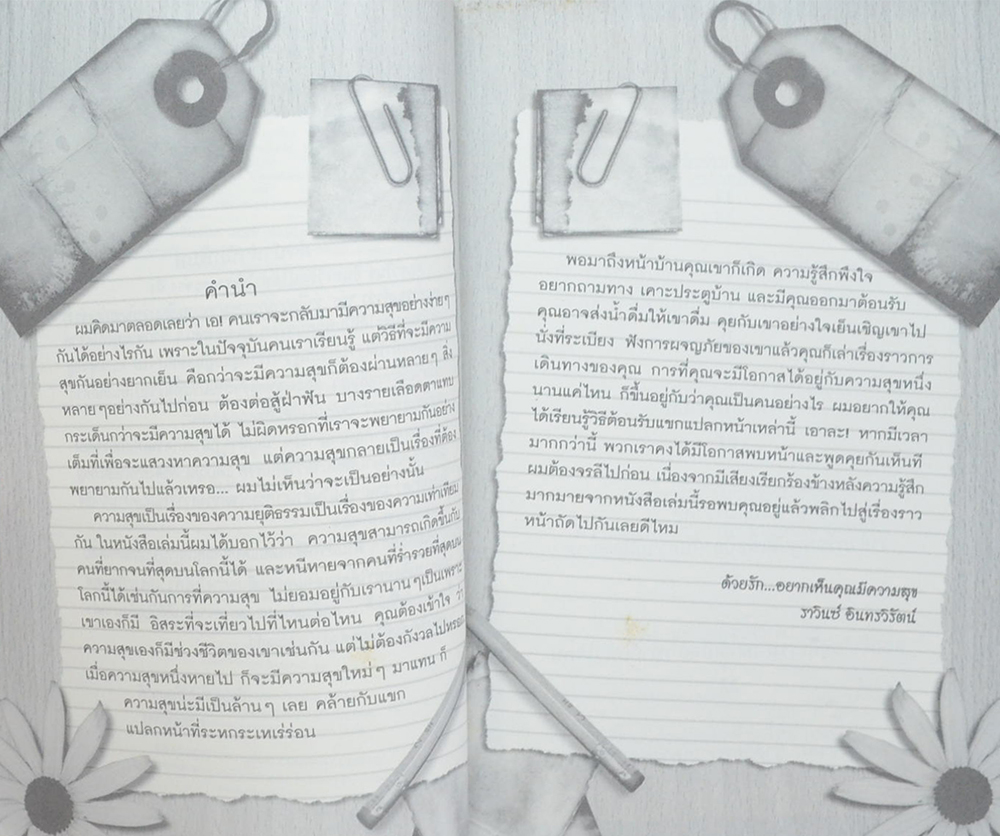 คำนำ
ผมคิดมาตลอดเลยว่า เอ! คนเราจะกลับมามีความสุขอย่างง่ายๆ
กันได้อย่างไรกัน เพราะในปัจจุบันคนเราเรียนรู้ แต่วิธีที่จะมีความ
สุขกันอย่างยากเย็น คือกว่าจะมีความสุขก็ต้องผ่านหลายๆ สิ่ง
หลายๆอย่างกันไปก่อน ต้องต่อสู้ฝ่าฟัน บางรายเลือดตาแทบ
กระเด็นกว่าจะมีความสุขได้ ไม่ผิดหรอกที่เราจะพยายามกันอย่าง
เต็มที่เพื่อจะแสวงหาความสุข แต่ความสุขกลายเป็นเรื่องที่ต้อง
พยายามกันไปแล้วเหรอ... ผมไม่เห็นว่าจะเป็นอย่างนั้น
ความสุขเป็นเรื่องของความยุติธรรมเป็นเรื่องของความเท่าเทียม
กัน ในหนังสือเล่มนี้ผมได้บอกไว้ว่า ความสุขสามารถเกิดขึ้นกับ
คนที่ยากจนที่สุดบนโลกนี้ได้ และหนีหายจากคนที่ร่ำรวยที่สุดบน
โลกนี้ได้เช่นกันการที่ความสุข ไม่ยอมอยู่กับเรานานๆเป็นเพราะ
เขาเองก็มี อิสระที่จะเที่ยวไปที่ไหนต่อไหน คุณต้องเข้าใจ ว่า
ความสุขเองก็มีช่วงชีวิตของเขาเช่นกัน แต่ไม่ต้องกังวลไปหรอก
เมื่อความสุขหนึ่งหายไป ก็จะมีความสุขใหม่ๆ มาแทน ก็
ความสุขน่ะมีเป็นล้านๆ เลย คล้ายกับแขก
แปลกหน้าที่ระหกระเหเร่ร่อน
พอมาถึงหน้าบ้านคุณเขาก็เกิด ความรู้สึกพึงใจ
อยากถามทาง เคาะประตูบ้าน และมีคุณออกมาต้อนรับ
คุณอาจส่งน้ำดื่มให้เขาดื่ม คุยกับเขาอย่างใจเย็นเชิญเขาไป
นั่งที่ระเบียง ฟังการผจญภัยของเขาแล้วคุณก็เล่าเรื่องราวการ
เดินทางของคุณ การที่คุณจะมีโอกาสได้อยู่กับความสุขหนึ่ง
นานแค่ไหน ก็ขึ้นอยู่กับว่าคุณเป็นคนอย่างไร ผมอยากให้คุณ
ได้เรียนรู้วิธีต้อนรับแขกแปลกหน้าเหล่านี้ เอาละ! หากมีเวลา
มากกว่านี้ พวกเราคงได้มีโอกาสพบหน้าและพูดคุยกันเห็นที
ผมต้องจรลีไปก่อน เนื่องจากมีเสียงเรียกร้องข้างหลังความรู้สึก
มากมายจากหนังสือเล่มนี้รอพบคุณอยู่แล้วพลิกไปสู่เรื่องราว
หน้าถัดไปกันเลยดีไหม
ด้วยรัก...อยากเห็นคุณมีความสุข
ราวินซ์ อินทรวิรัตน์